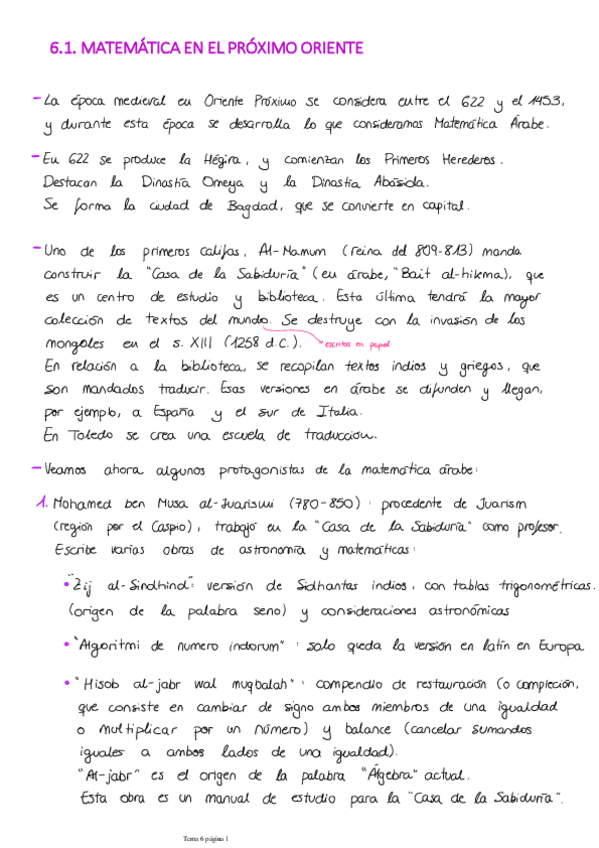 6.1. MATEMÁTICA EN EL PRÓXIMO ORIENTE
- La época medieval en Oriente Próximo se considera entre el 622 y el 1453,
y durante esta época se desarrolla lo que consideramos Matemática Árabe.
- En 622 se produce la Hégira, y comienzan los Primeros Herederos.
Destacan la Dinastía Omeya y la Dinastía Abásida.
Se forma la ciudad de Bagdad, que se convierte en capital.
- Uno de los primeros califas, Al-Mamum (reina del 809-813) manda
construir la "Casa de la Sabiduría" (en árabe, "Bait al-hikma), que
es un centro de estudio y biblioteca. Esta última tendrá la mayor
colección de textos del mundo. Se destruye con la invasión de los
mongoles en el s. XIII (1258 d.C.). escritos en papel
En relación a la biblioteca, se recopilan textos indios y griegos, que
son mandados traducir. Esas versiones en árabe se difunden y llegan,
por ejemplo, a España y el sur de Italia.
En Toledo se crea una escuela de traducción.
- Veamos ahora algunos protagonistas de la matemática árabe:
1. Mohamed ben Musa al-Juarismi (780-850): procedente de Juarism
(región por el Caspio), trabajó en la "Casa de la Sabiduría" como profesor.
Escribe varias obras de astronomía y matemáticas:
• "Zij al-Sindhind": versión de Sidhantas indios, con tablas trigonométricas.
(origen de la palabra seno) y consideraciones astronómicas
• "Algoritmi de numero indorum": solo queda la versión en latín en Europa
• "Hisob al-jabr wal muqbalah": compendio de restauración (o compleción,
que consiste en cambiar de signo ambos miembros de una igualdad
o multiplicar por un número) y balance (cancelar sumandos
iguales a ambos lados de una igualdad).
"Al-jabr" es el origen de la palabra "Álgebra" actual.
Esta obra es un manual de estudio para la "Casa de la Sabiduría".
Tema 6 página 1